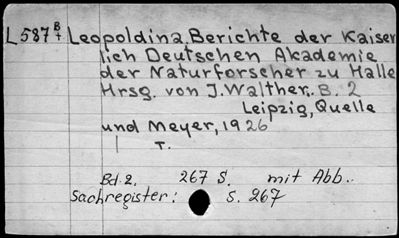 L 587 B/t Leopoldina, Berichte der Kaiser
lich Deutschen Akademie
der Naturforscher zu Halle
Hrsg. von J. Walther,. B. 2
Leipzig, Quelle
und Meyer, 1926
T.
Bd 2. 267 S. mit Abb..
Sachregister: S. 267